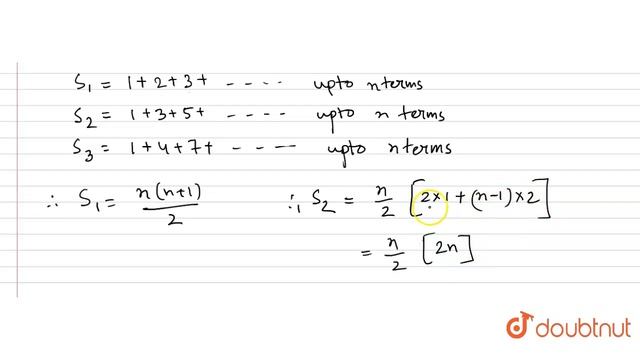 S₁ = 1+2+3+ ---- upto n terms
S₂ = 1+3+5+ ---- upto n terms
S₃ = 1+4+7+ ---- upto n terms
∴ S₁ = n(n+1)/2 ∴, S₂ = n/2 [2×1+(n-1)×2]
= n/2 [2n]
doubtnut